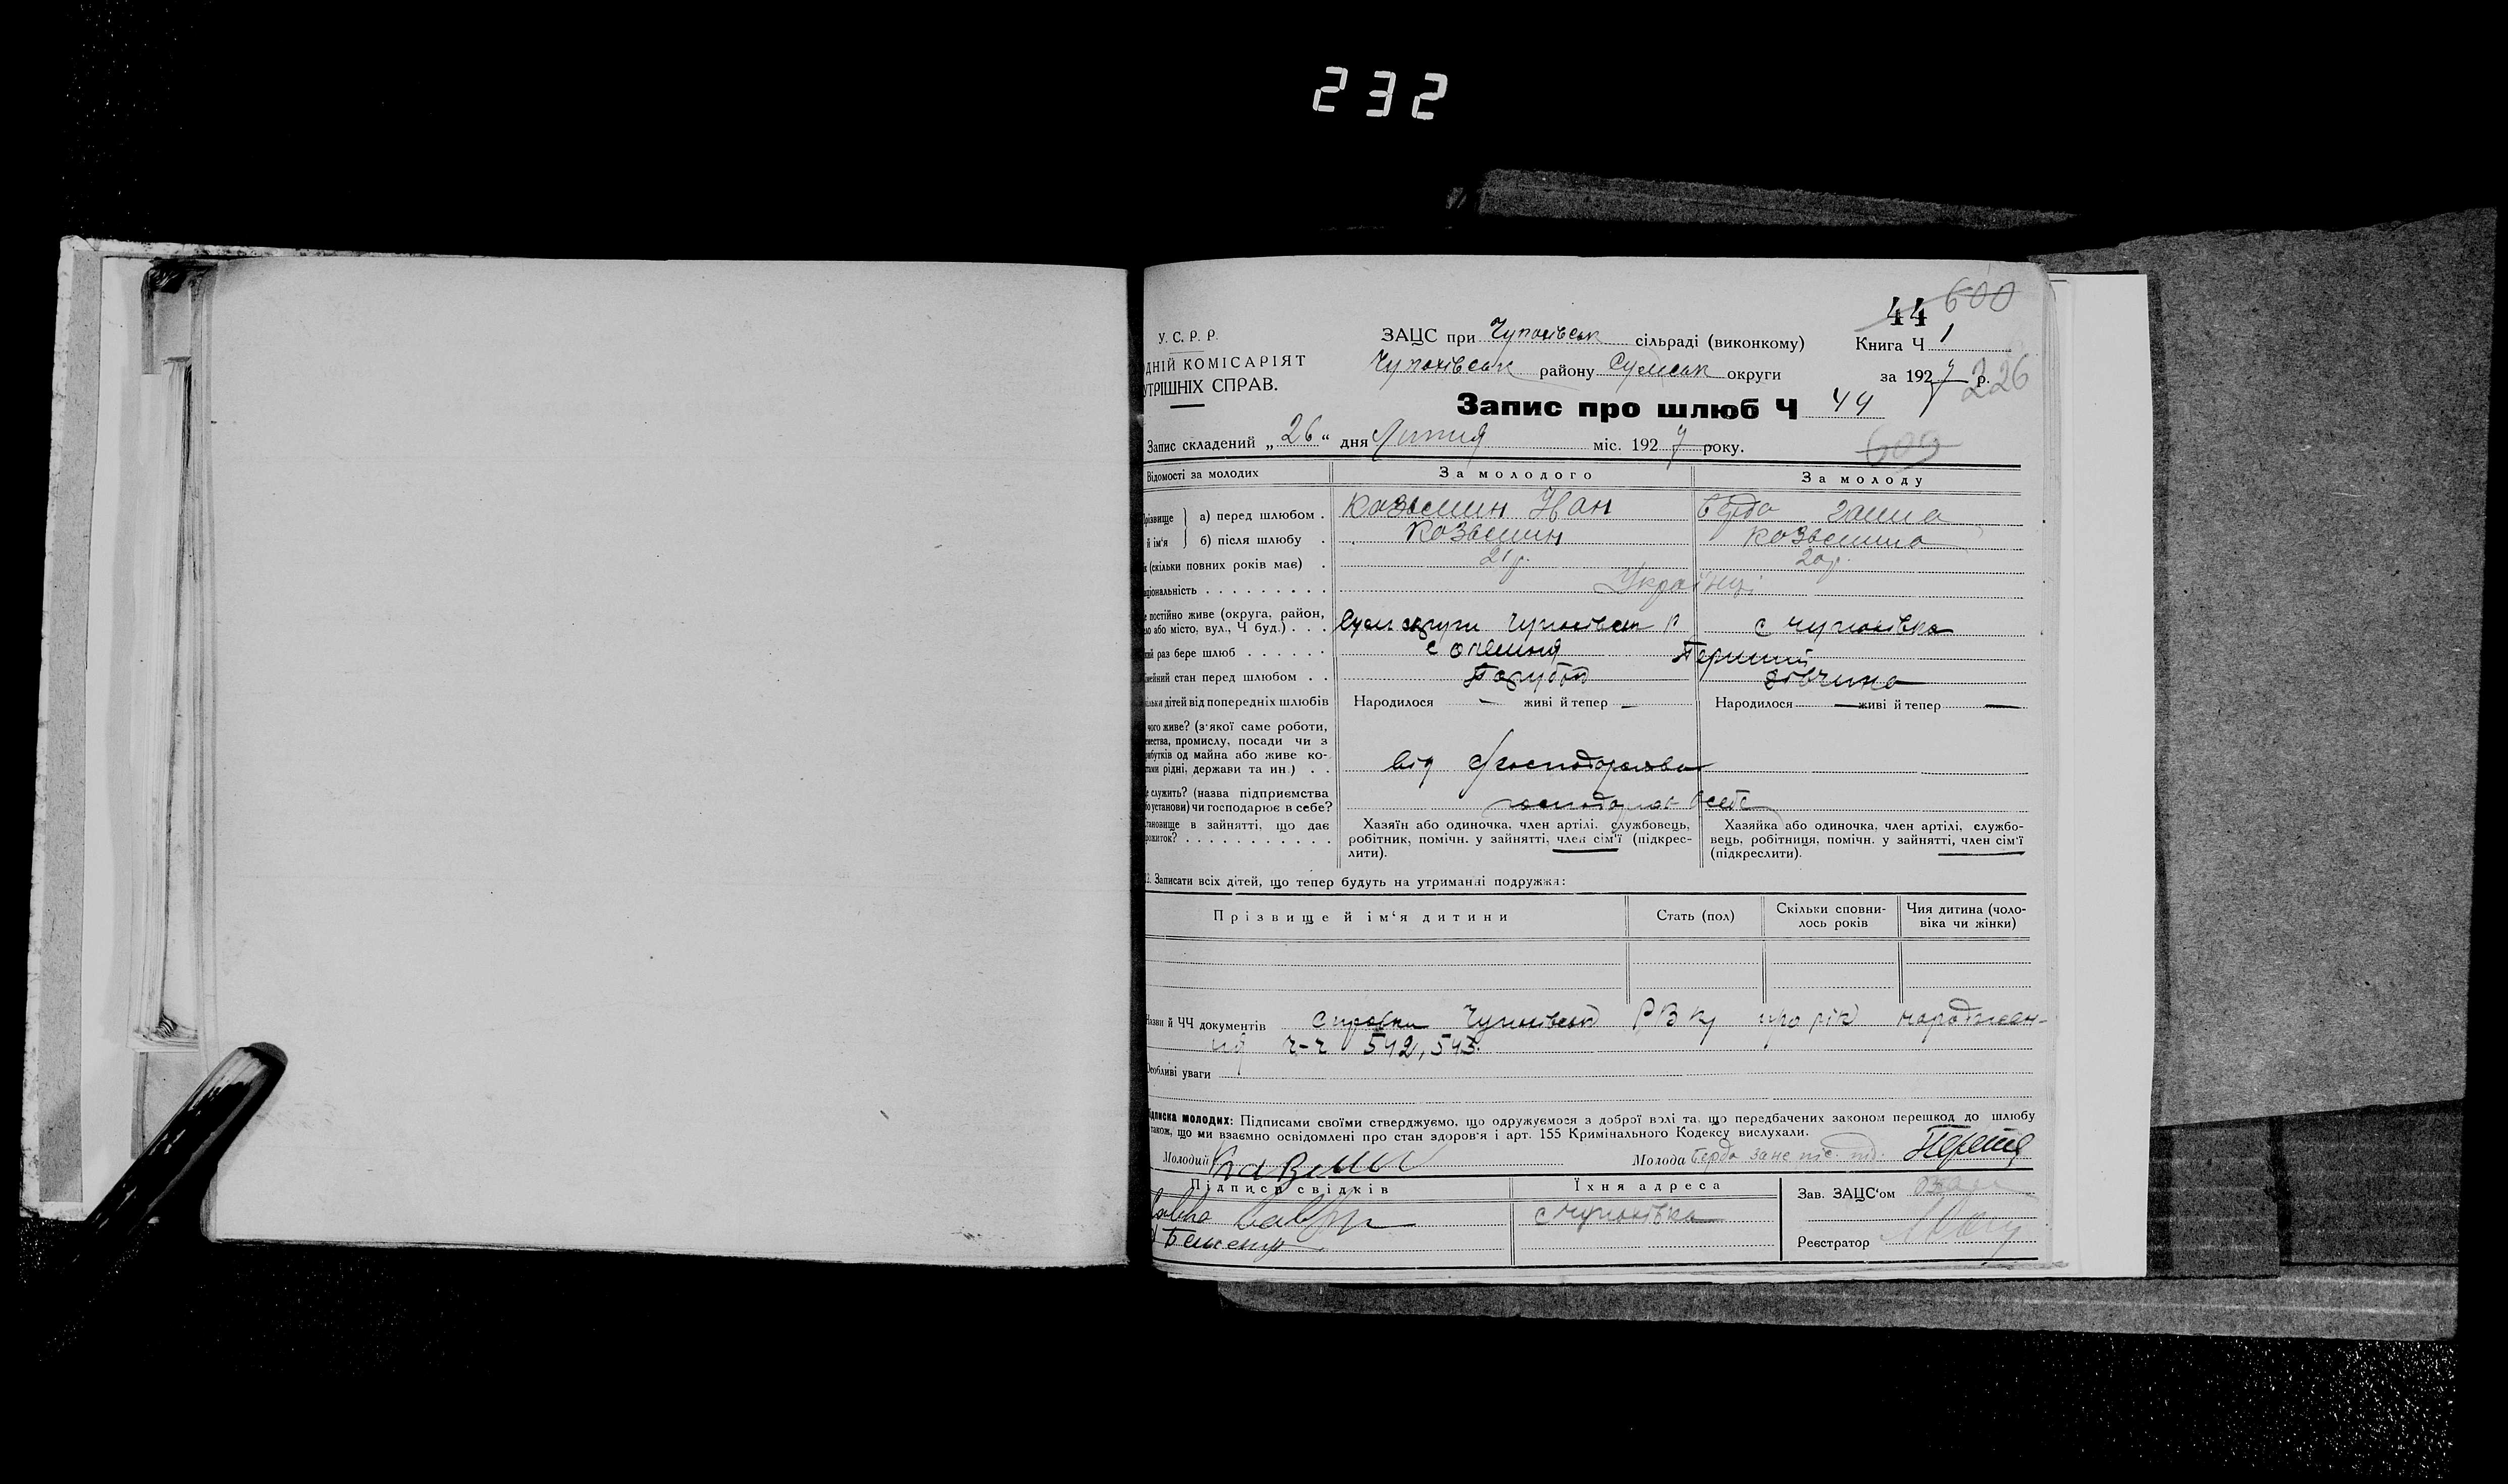 232
44 600
У. С. Р. Р.
ЗАЦС при Чупахівськ сільраді (виконкому)
Книга Ч 1
ДНІЙ КОМІСАРІЯТ
Чупахівськ району Сумськ округи
за 1927 р.
226
УТРІШНІХ СПРАВ.
Запис про шлюб Ч 44
Запис складений „26“ дня Липня міс. 1927 року.
609
Відомості за молодих
За молодого
За молоду
різвище й ім'я
а) перед шлюбом .
Козьмин Иван
б) після шлюбу .
Козьмин
Козьмина
к (скільки повних років має) .
21 р.
20 р.
ціональність . . . . . . . . .
Українці
е постійно живе (округа, район,
ло або місто, вул., Ч буд.) . . .
Сум округи Чупахівськ р
с Чупахівка
ий раз бере шлюб . . . . . .
с
Перший
імейний стан перед шлюбом . .
Парубок
дівчина
ільки дітей від попередніх шлюбів
Народилося — живі й тепер —
Народилося — живі й тепер —
чого живе? (з якої саме роботи,
мества, промислу, посади чи з
ибутків од майна або живе ко-
тами рідні, держави та ин.) . .
від господарства
е служить? (назва підприємства
бо установи) чи господарює в себе?
господарює в себе
тановище в зайнятті, що дає
рожиток? . . . . . . . . . . .
Хазяїн або одиночка, член артілі, службовець,
робітник, помічн. у зайнятті, член сім'ї (підкрес-
лити).
Хазяйка або одиночка, член артілі, службо-
вець, робітниця, помічн. у зайнятті, член сім'ї
(підкреслити).
2. Записати всіх дітей, що тепер будуть на утриманні подружжя:
Прізвище й ім'я дитини
Стать (пол)
Скільки сповни-
лось років
Чия дитина (чоло-
віка чи жінки)
Назви й ЧЧ документів
Справки Чупахівськ РВК про рік народжен-
ня ч-ч 542, 543.
Особливі уваги
ідписка молодих: Підписами своїми стверджуємо, що одружуємося з доброї волі та, що передбачених законом перешкод до шлюбу
також, що ми взаємно освідомлені про стан здоров'я і арт. 155 Кримінального Кодексу вислухали.
Молодий
Молода
Підписи свідків
Їхня адреса
Зав. ЗАЦС'ом
с Чупахівка
Реєстратор